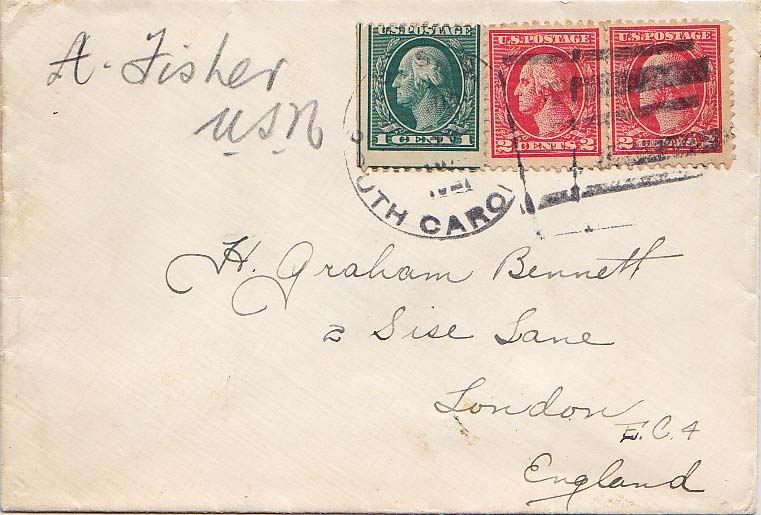 A. Fisher
USN
U.S. POSTAGE
1 CENT 1
U.S. POSTAGE
2 CENTS 2
U.S. POSTAGE
2
U.S.S.
UTH CARO
H. Graham Bennett
2 Sise Lane
London
E.C. 4
England